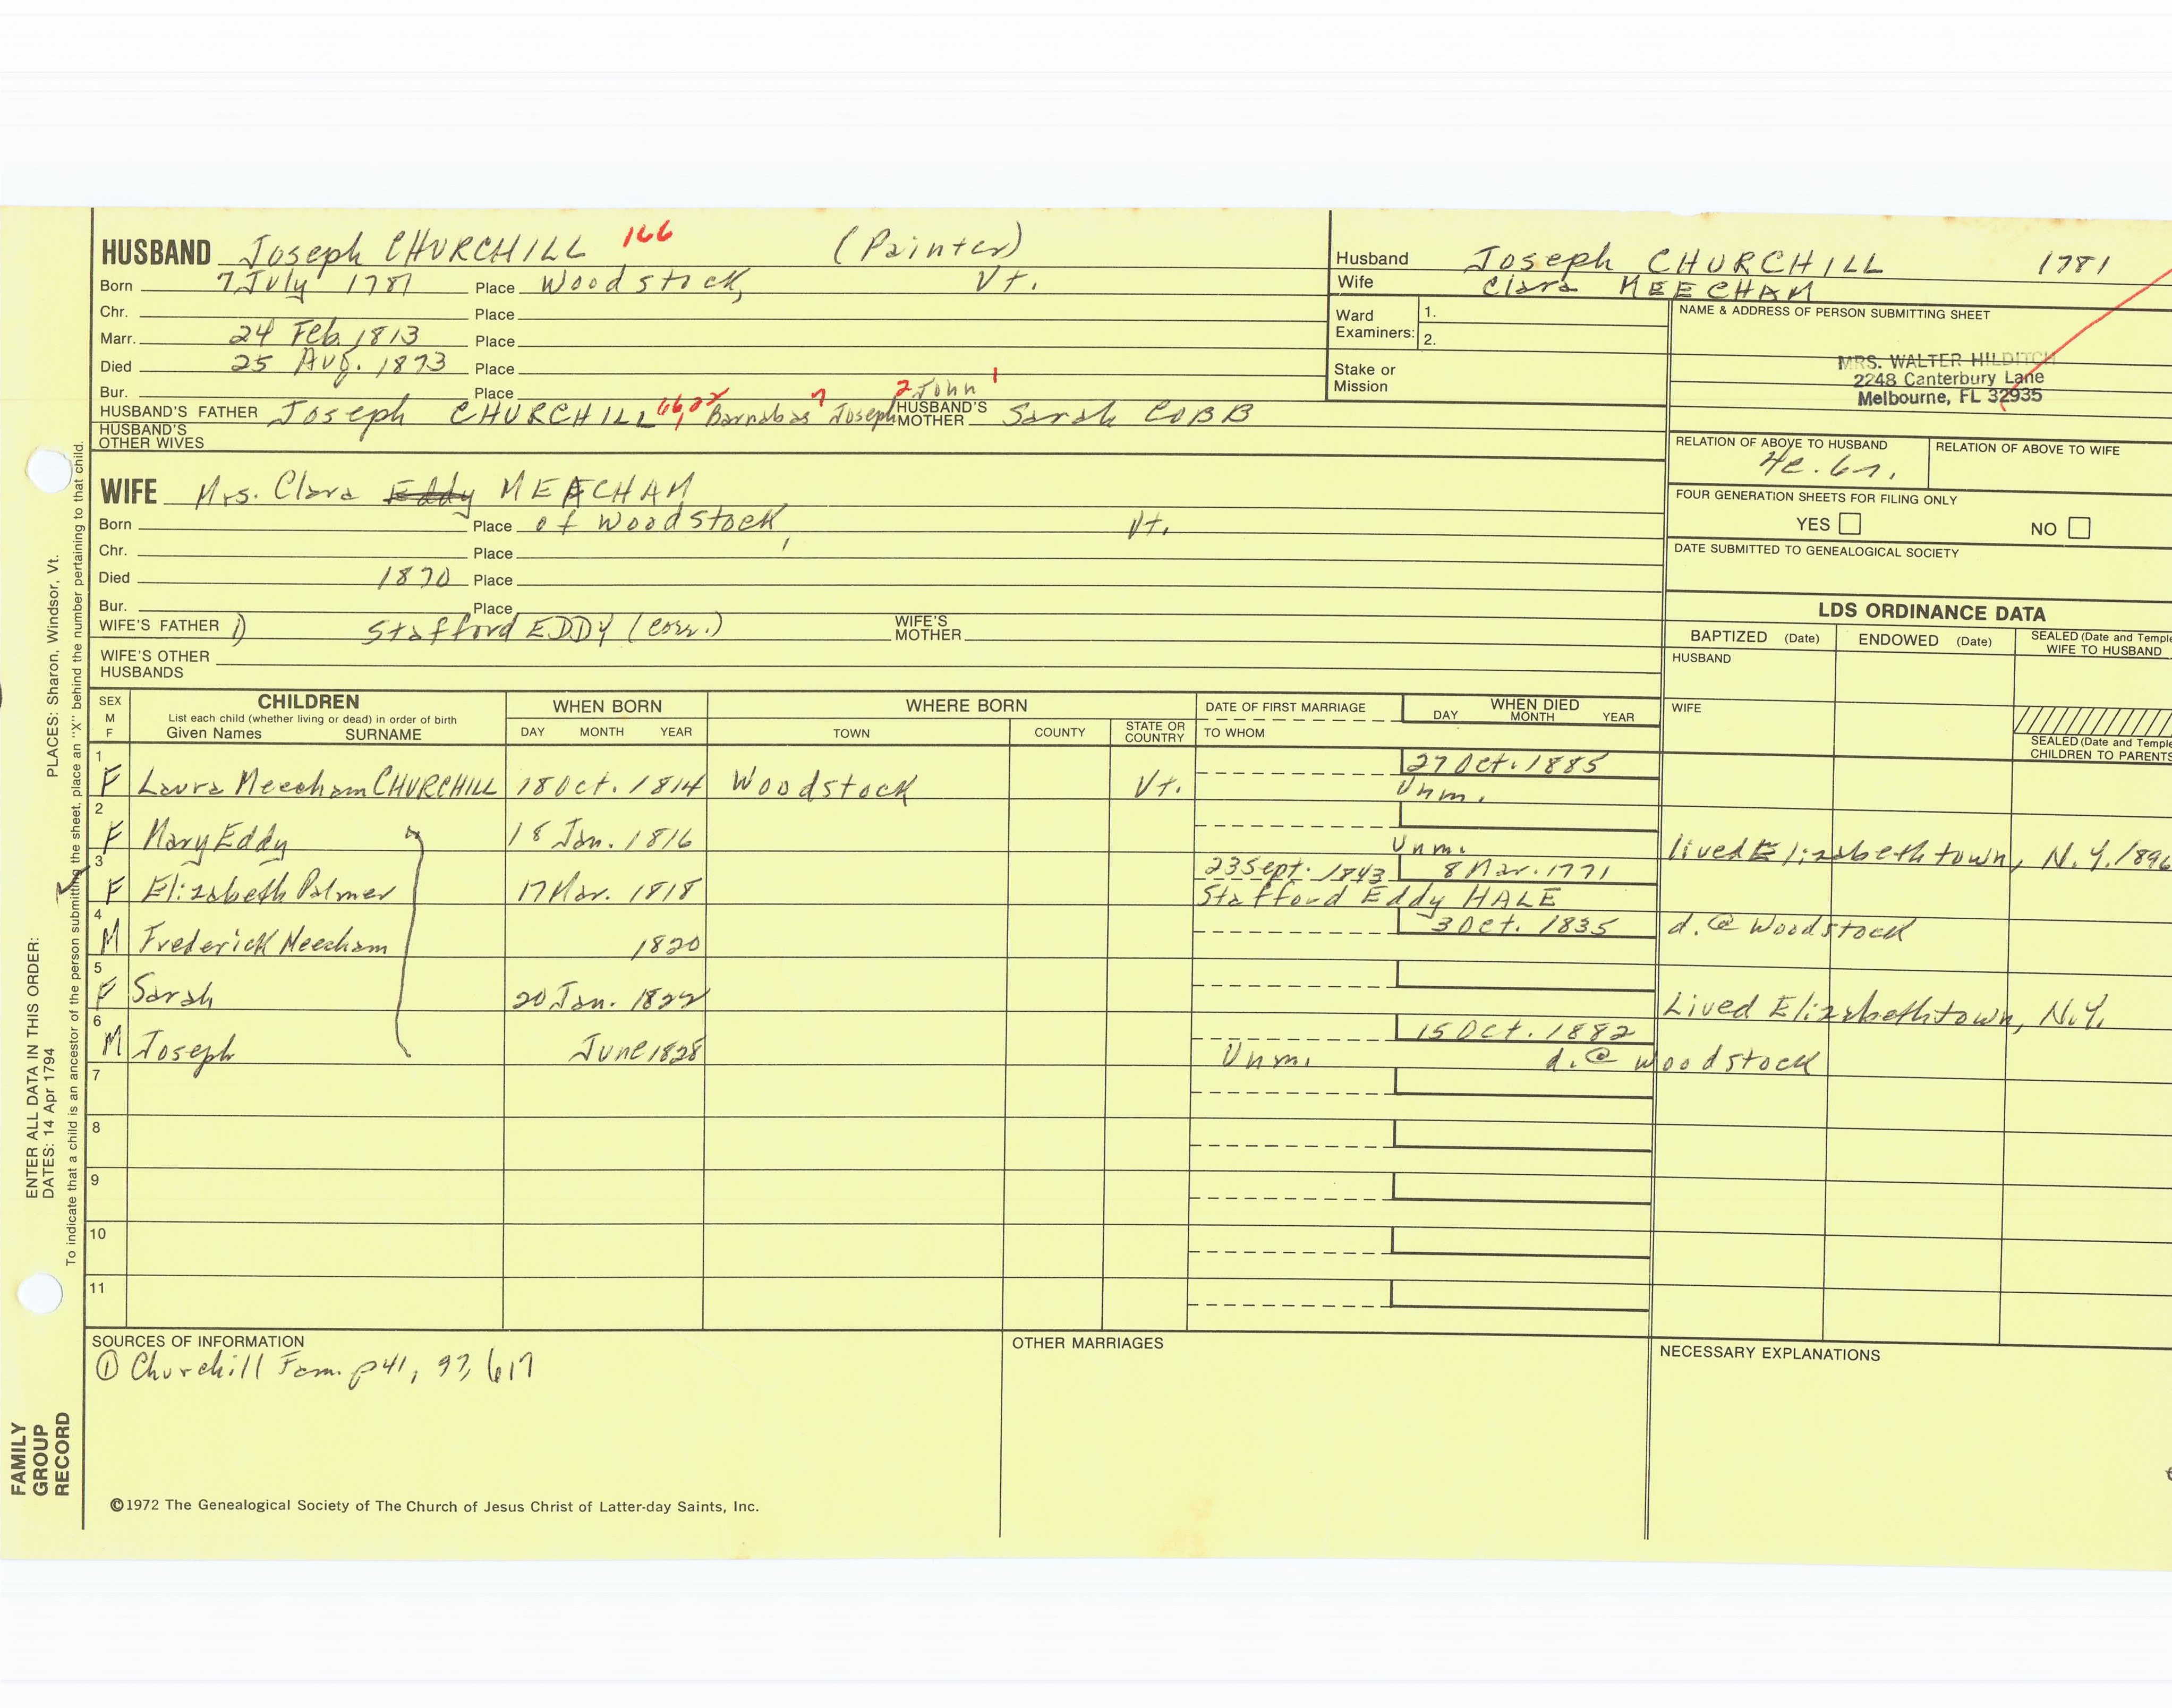 HUSBAND Joseph CHURCHILL 166 (Painter)
Born 7 July 1781 Place Woodstock, Vt.
Chr. Place
Marr. 24 Feb. 1813 Place
Died 25 Aug. 1873 Place
Bur. Place 2 John 1
HUSBAND'S FATHER Joseph CHURCHILL Barnabas Joseph HUSBAND'S MOTHER Sarah COBB
HUSBAND'S OTHER WIVES
Husband Joseph CHURCHILL 1781
Wife Clara MEECHAM
Ward Examiners: 1.
2.
Stake or Mission
NAME & ADDRESS OF PERSON SUBMITTING SHEET
MRS. WALTER HILDITCH
2248 Canterbury Lane
Melbourne, FL 32935
RELATION OF ABOVE TO HUSBAND RELATION OF ABOVE TO WIFE
FOUR GENERATION SHEETS FOR FILING ONLY
YES NO
DATE SUBMITTED TO GENEALOGICAL SOCIETY
WIFE Mrs. Clara Eddy MEACHAM
Born Place of Woodstock, Vt.
Chr. Place
Died 1870 Place
Bur. Place
WIFE'S FATHER 1) Stafford EDDY (corr.) WIFE'S MOTHER
WIFE'S OTHER HUSBANDS
LDS ORDINANCE DATA
BAPTIZED (Date) ENDOWED (Date) SEALED (Date and Temple
WIFE TO HUSBAND
HUSBAND
WIFE
SEALED (Date and Temple
CHILDREN TO PARENTS
SEX M F
CHILDREN
List each child (whether living or dead) in order of birth
Given Names SURNAME
WHEN BORN
DAY MONTH YEAR
WHERE BORN
TOWN COUNTY STATE OR COUNTRY
DATE OF FIRST MARRIAGE
TO WHOM
WHEN DIED
DAY MONTH YEAR
1 27 Oct. 1885
F Laura Meecham CHURCHILL 18 Oct. 1814 Woodstock Vt. Unm.
2
F Mary Eddy 18 Jan. 1816 Unm. lived Elizabethtown, N.Y. 1896
3 23 Sept. 1843 8 Mar. 1771
F Elizabeth Palmer 17 Mar. 1818 Stafford Eddy HALE
4 3 Oct. 1835 d. @ Woodstock
M Frederick Meecham 1820
5
F Sarah 20 Jan. 1822 Lived Elizabethtown, N.Y.
6 15 Oct. 1882
M Joseph June 1828 Unm. d. @ Woodstock
7
8
9
10
11
SOURCES OF INFORMATION
① Churchill Fam. p 41, 97, 617
OTHER MARRIAGES
NECESSARY EXPLANATIONS
©1972 The Genealogical Society of The Church of Jesus Christ of Latter-day Saints, Inc.
FAMILY GROUP RECORD
ENTER ALL DATA IN THIS ORDER:
DATES: 14 Apr 1794
PLACES: Sharon, Windsor, Vt.
To indicate that a child is an ancestor of the person submitting the sheet, place an "X" behind the number pertaining to that child.